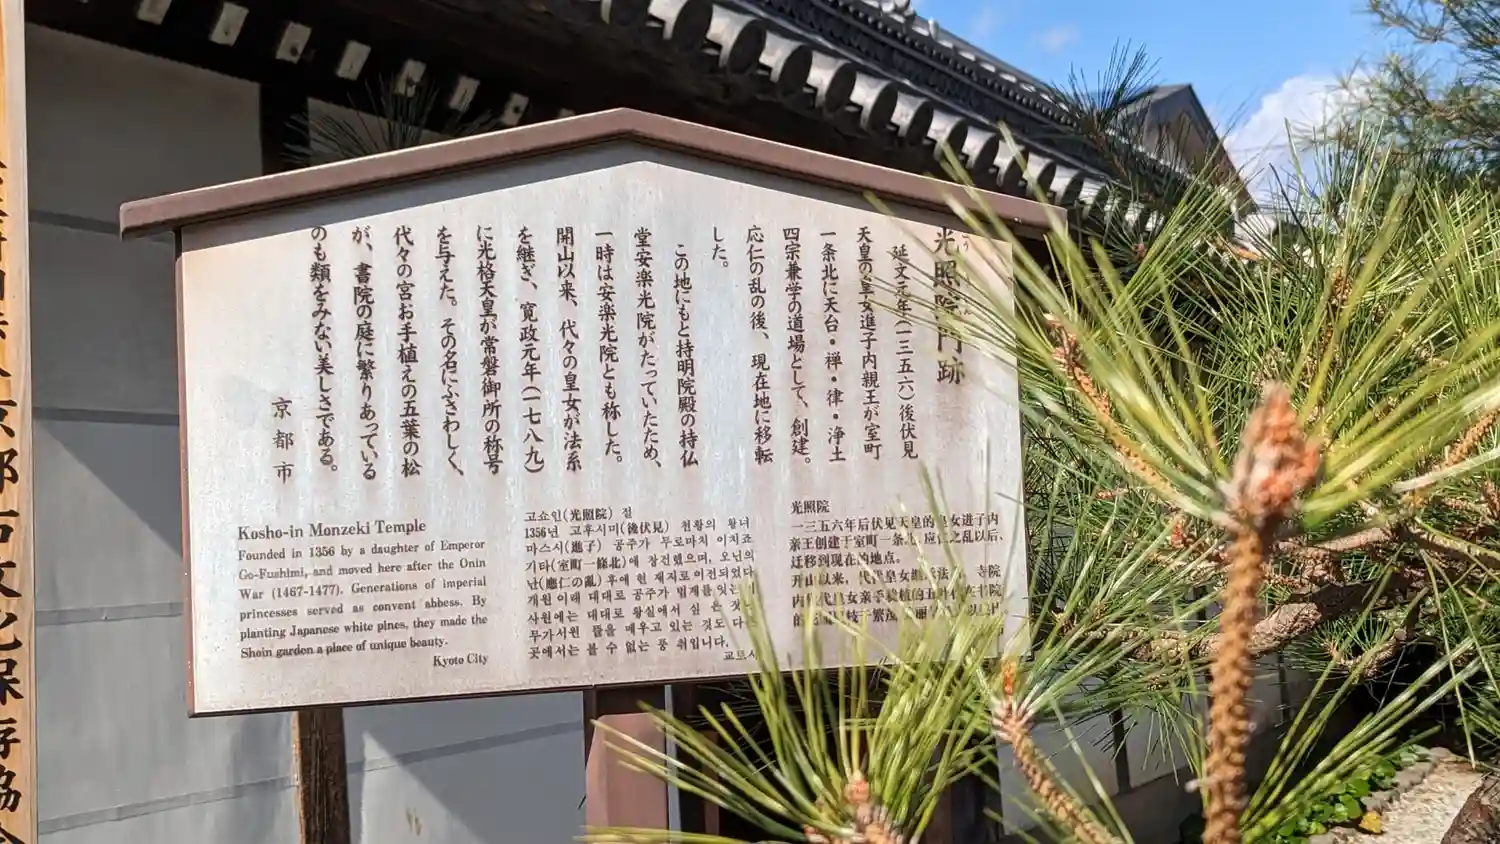 光照院門跡
延文元年(一三五六)後伏見
天皇の皇女進子内親王が室町
一条北に天台・禅・律・浄土
四宗兼学の道場として、創建。
応仁の乱の後、現在地に移転
した。
この地にもと持明院殿の持仏
堂安楽光院がたっていたため、
一時は安楽光院とも称した。
開山以来、代々の皇女が法系
を継ぎ、寛政元年(一七八九)
に光格天皇が常磐御所の称号
を与えた。その名にふさわしく、
代々の宮お手植えの五葉の松
が、書院の庭に繁りあっている
のも類をみない美しさである。
京都市
Kosho-in Monzeki Temple
Founded in 1356 by a daughter of Emperor
Go-Fushimi, and moved here after the Onin
War (1467-1477). Generations of imperial
princesses served as convent abbess. By
planting Japanese white pines, they made the
Shoin garden a place of unique beauty.
Kyoto City
고쇼인(光照院) 절
1356년 고후시미(後伏見) 천황의 황녀
마스시(進子) 공주가 무로마치 이치죠
기타(室町一條北)에 창건했으며, 오닌의
난(應仁の亂)후에 현 재지로이전되었다
개원이래 대대로 공주가 법계를 잇는
사원에는 대대로 왕실에서 심은 잣
무가서원 뜰을 메우고 있는 것도 다
곳에서는 볼 수 없는 풍 취입니다.
교토시
光照院
一三五六年后伏见天皇的皇女进子内
亲王创建于室町一条北,应仁之乱以后、
迁移到现在的地点。
开山以来,代代皇女继 法 寺院
内 代 皇女亲手栽植的五叶
的 枝 繁茂 丽